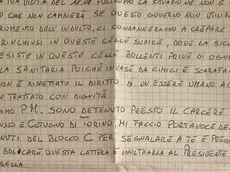 TUA VISITA DEL 18.08 LA SITUAZIONE NON È
CHE NON CAMBIERÀ SE QUESTO GOVERNO NON UTILIZ
RUMENTO DELL'INDULTO, CI CONDANNERANNO A CREPARE
RINCHIUSI IN QUESTE CELLE SUDICIE, DOVE LA SIG
ESISTE IN QUESTE CELLE BOLLENTI PRIVE DI
SANITARIA POICHÈ INVASE DA CIMICI E SCARAFA
NON È RISPETTATO IL DIRITTO DI UN ESSERE UMANO DI
TRATTATO CON DIGNITÀ.
P.H. SONO DETENUTO PRESSO IL CARCERE
USSO E COTUGNO DI TORINO, MI FACCIO PORTAVOCE DE
NUTI DEL BLOCCO C PER SEGNALARE A TE E PREGO
QUESTA LETTERA E INOLTRARLA AL PRESIDENTE
RELLA